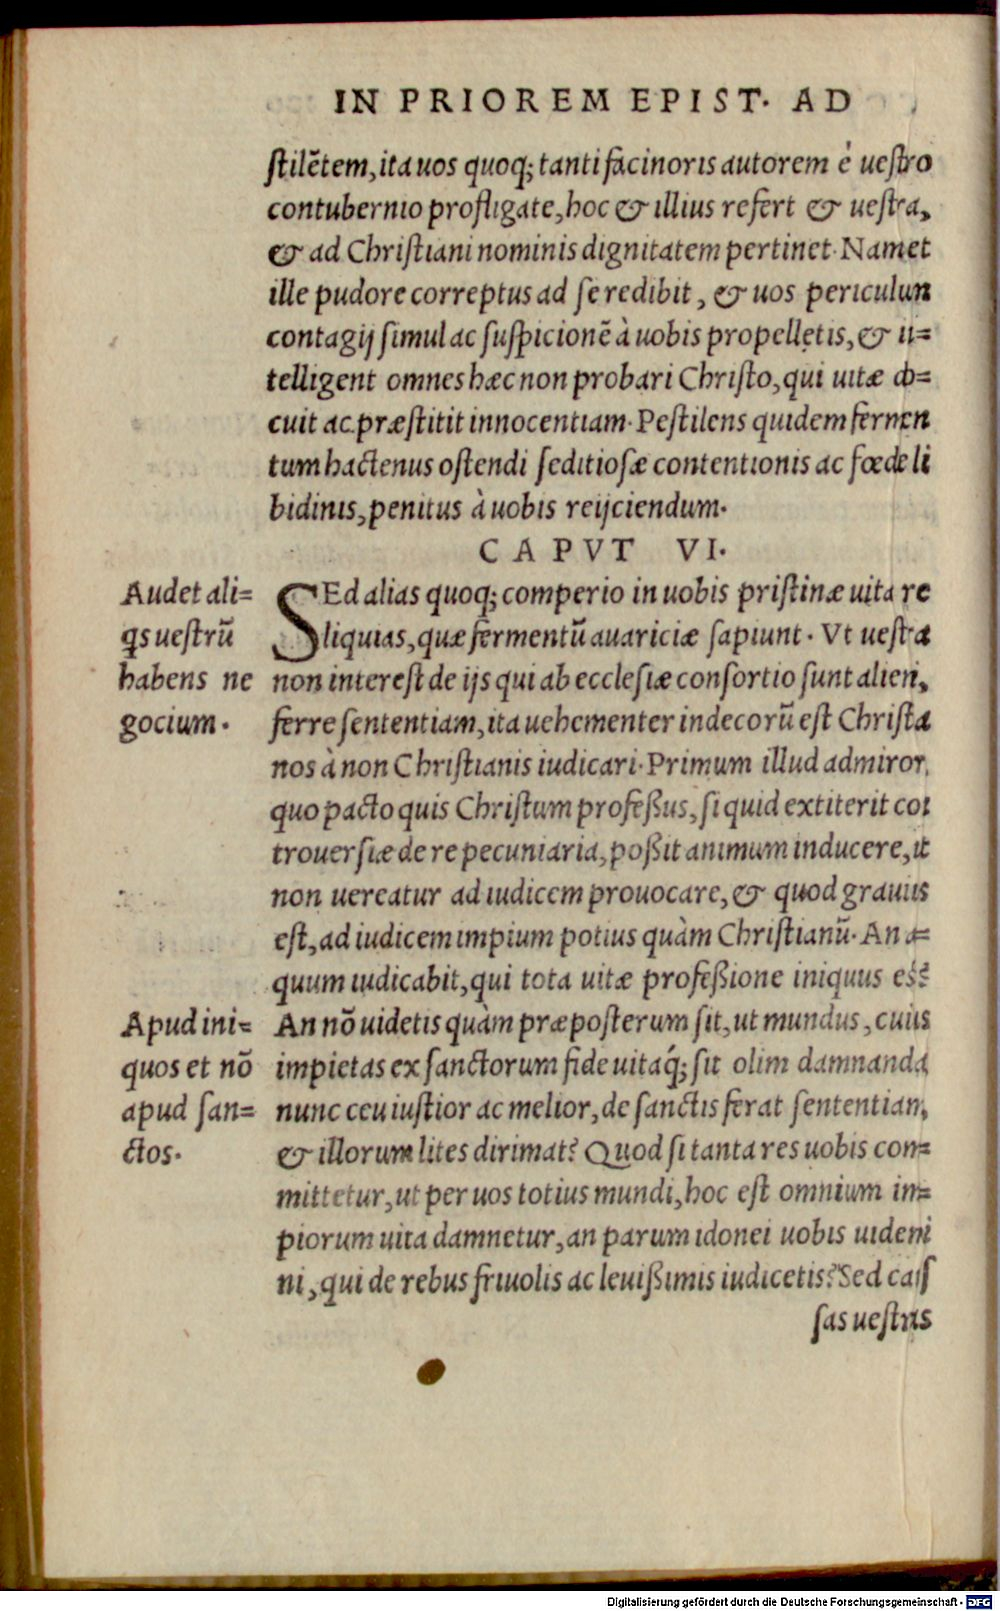 IN PRIOREM EPIST. AD
stilētem, ita uos quoq; tanti facinoris autorem è uestro
contubernio profligate, hoc & illius refert & uestra,
& ad Christiani nominis dignitatem pertinet. Nam et
ille pudore correptus ad se redibit, & uos periculum
contagij simul ac suspicionē à uobis propelletis, & in=
telligent omnes hæc non probari Christo, qui uitæ do=
cuit ac præstitit innocentiam. Pestilens quidem fermen
tum hactenus ostendi seditiosæ contentionis ac fœdæ li
bidinis, penitus à uobis reijciendum.
CAPVT VI.
Audet ali=
qs uestrū
habens ne
gocium.
SEd alias quoq; comperio in uobis pristinæ uita re
liquias, quæ fermentū auariciæ sapiunt. Vt uestra
non interest de ijs qui ab ecclesiæ consortio sunt alieni,
ferre sententiam, ita uehementer indecorū est Christa
nos à non Christianis iudicari. Primum illud admiror,
quo pacto quis Christum professus, si quid extiterit con
trouersiæ de re pecuniaria, possit animum inducere, ut
non uereatur ad iudicem prouocare, & quod grauius
est, ad iudicem impium potius quàm Christianū. An æ=
quum iudicabit, qui tota uitæ professione iniquus est?
Apud ini=
quos et nō
apud san=
ctos.
An nō uidetis quàm præposterum sit, ut mundus, cuius
impietas ex sanctorum fide uitaq́; sit olim damnanda
nunc ceu iustior ac melior, de sanctis ferat sententiam,
& illorum lites dirimat? Quod si tanta res uobis com=
mittetur, ut per uos totius mundi, hoc est omnium im=
piorum uita damnetur, an parum idonei uobis uidemi
ni, qui de rebus friuolis ac leuissimis iudicetis? Sed caus
sas uestras
Digitalisierung gefördert durch die Deutsche Forschungsgemeinschaft - DFG